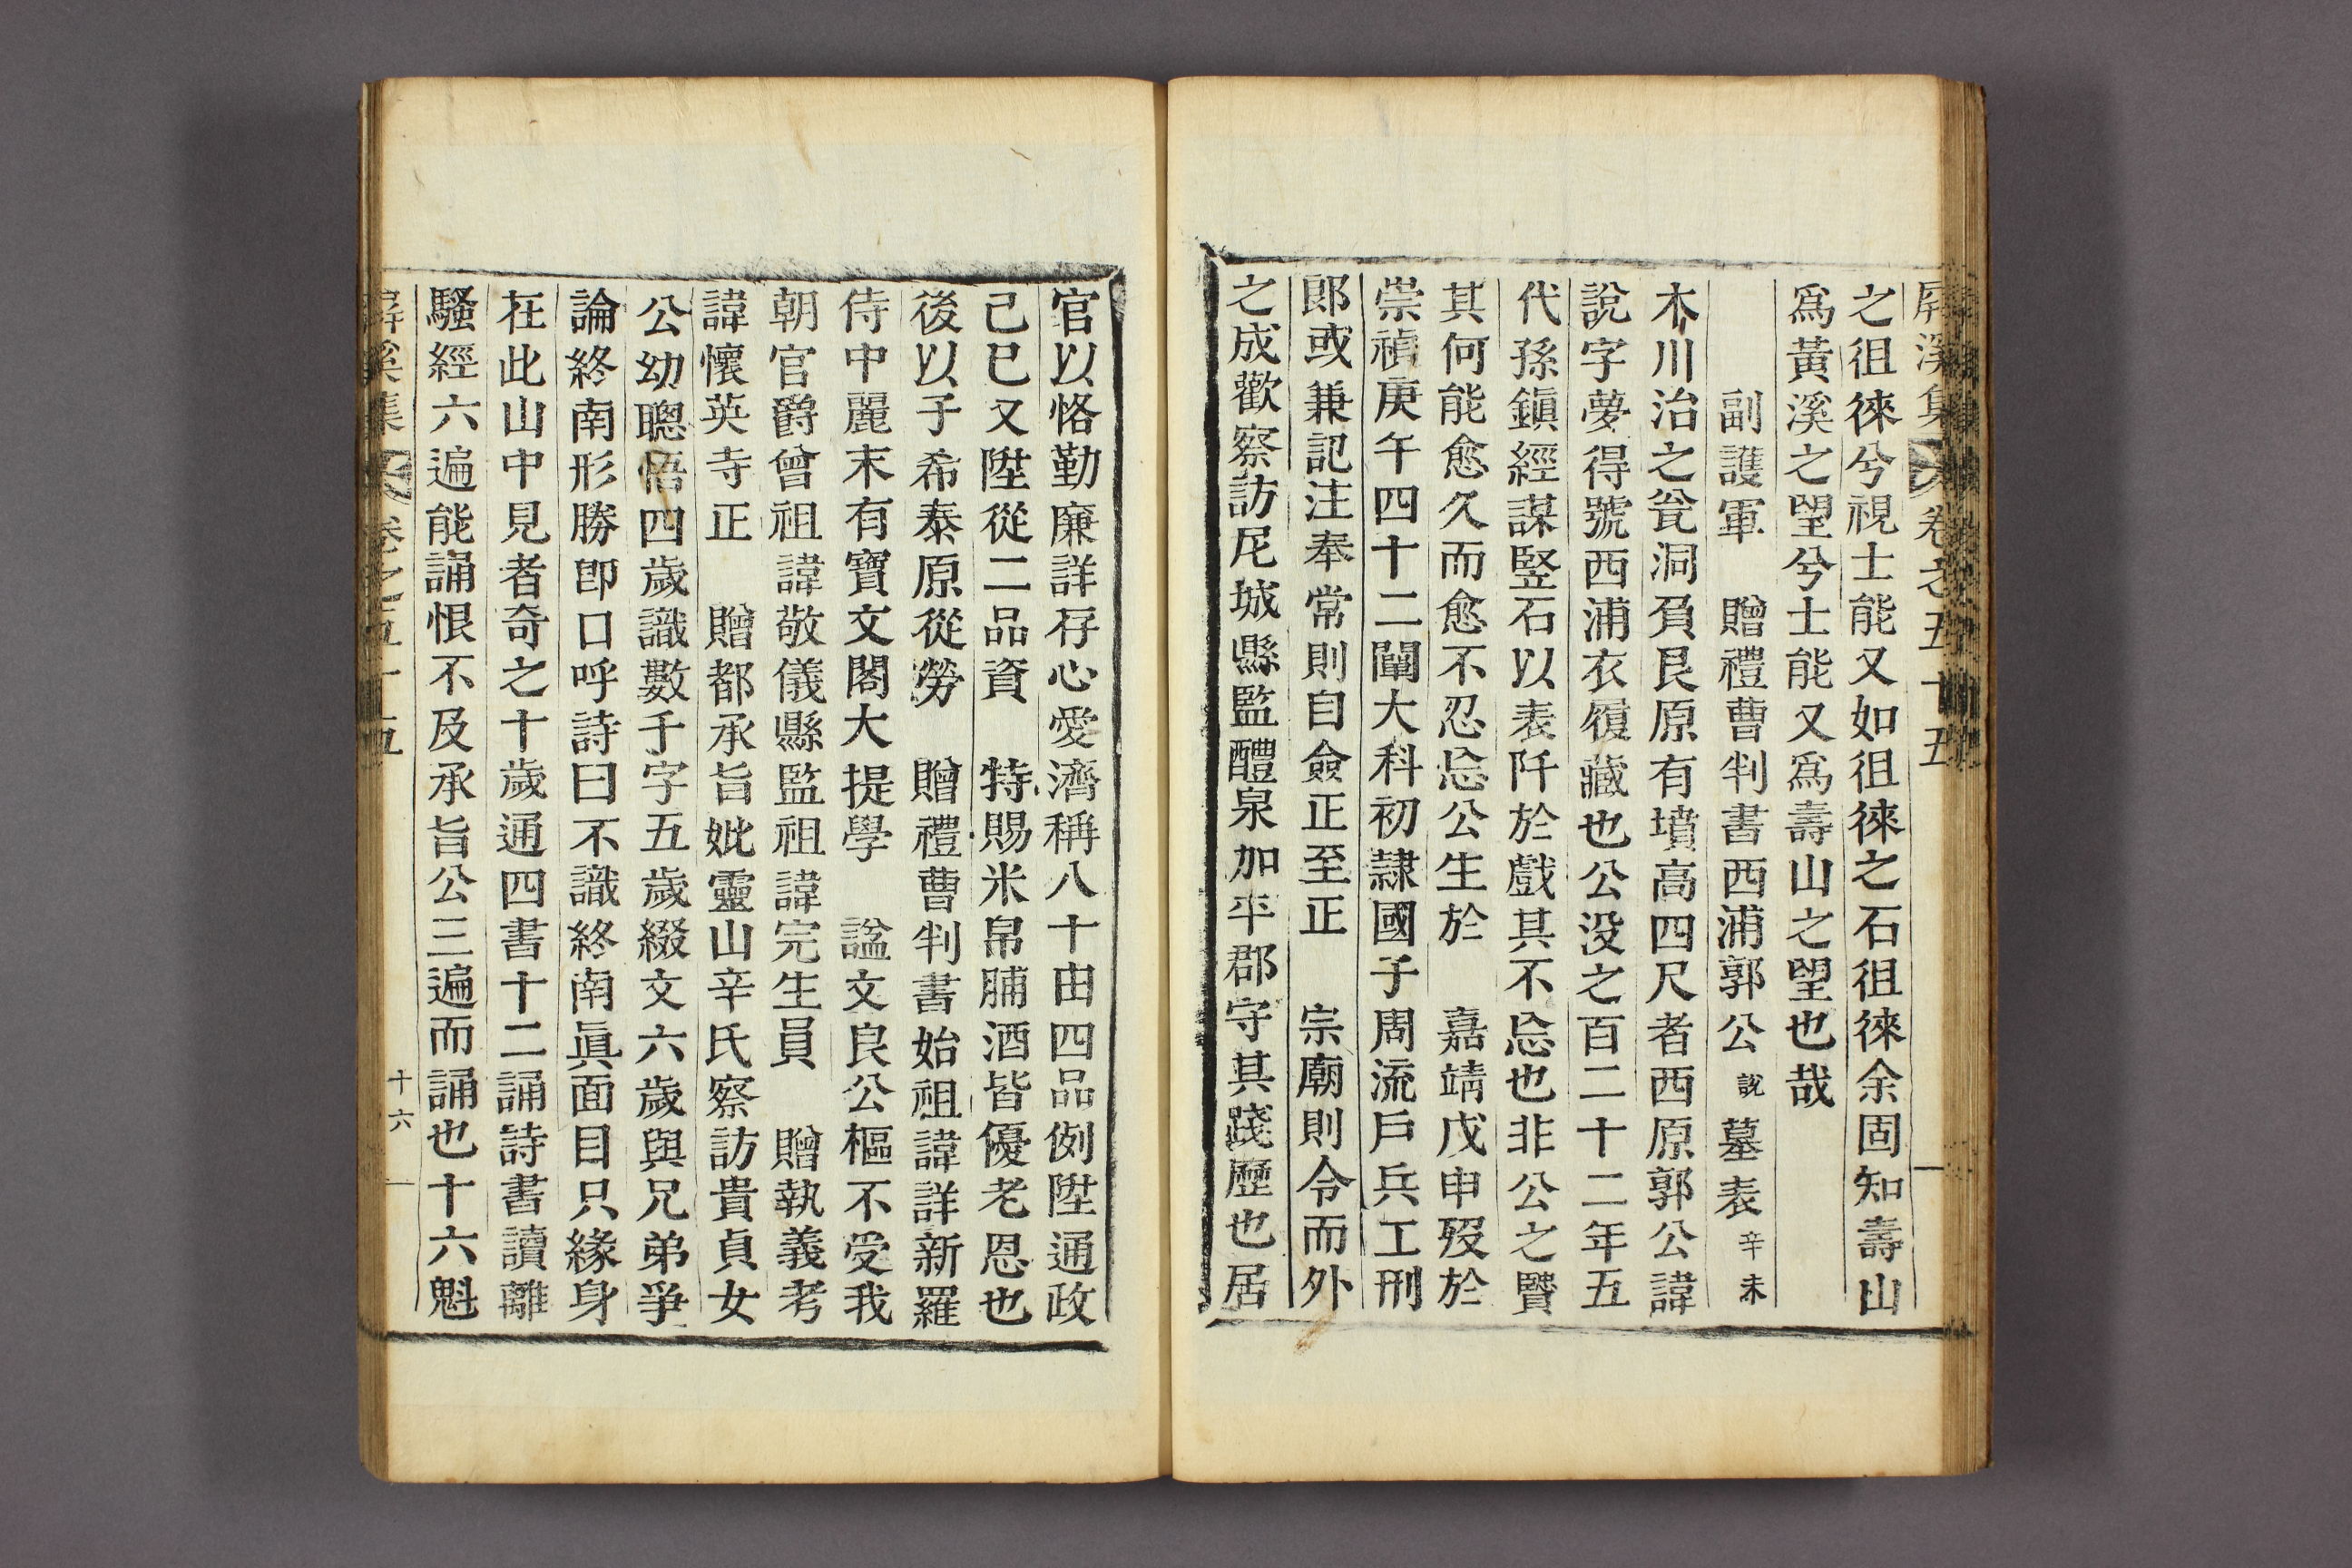 屛溪集 卷之五十五
之徂徠兮視士能又如徂徠之石徂徠余固知壽山
爲黃溪之望兮士能又爲壽山之望也哉
副護軍 贈禮曹判書西浦郭公說墓表辛未
木川治之瓮洞負艮原有墳高四尺者西原郭公諱
說字夢得號西浦衣履藏也公没之百二十二年五
代孫鎭經謀竪石以表阡於戲其不忘也非公之賢
其何能愈久而愈不忍忘公生於 嘉靖戊申歿於
崇禎庚午四十二闡大科初隷國子周流戶兵工刑
郞或兼記注奉常則自僉正至正 宗廟則令而外
之成歡察訪尼城縣監醴泉加平郡守其踐歷也居
官以恪勤廉詳存心愛濟稱八十由四品例陞通政
己巳又陞從二品資 特賜米帛脯酒皆優老恩也
後以子希泰原從勞 贈禮曹判書始祖諱詳新羅
侍中麗末有寶文閣大提學 諡文良公樞不受我
朝官爵曾祖諱敬儀縣監祖諱完生員 贈執義考
諱懷英寺正 贈都承旨妣靈山辛氏察訪貴貞女
公幼聰悟四歲識數千字五歲綴文六歲與兄弟爭
論終南形勝卽口呼詩曰不識終南眞面目只緣身
在此山中見者奇之十歲通四書十二誦詩書讀離
騷經六遍能誦恨不及承旨公三遍而誦也十六魁
屛溪集 卷之五十五 十六